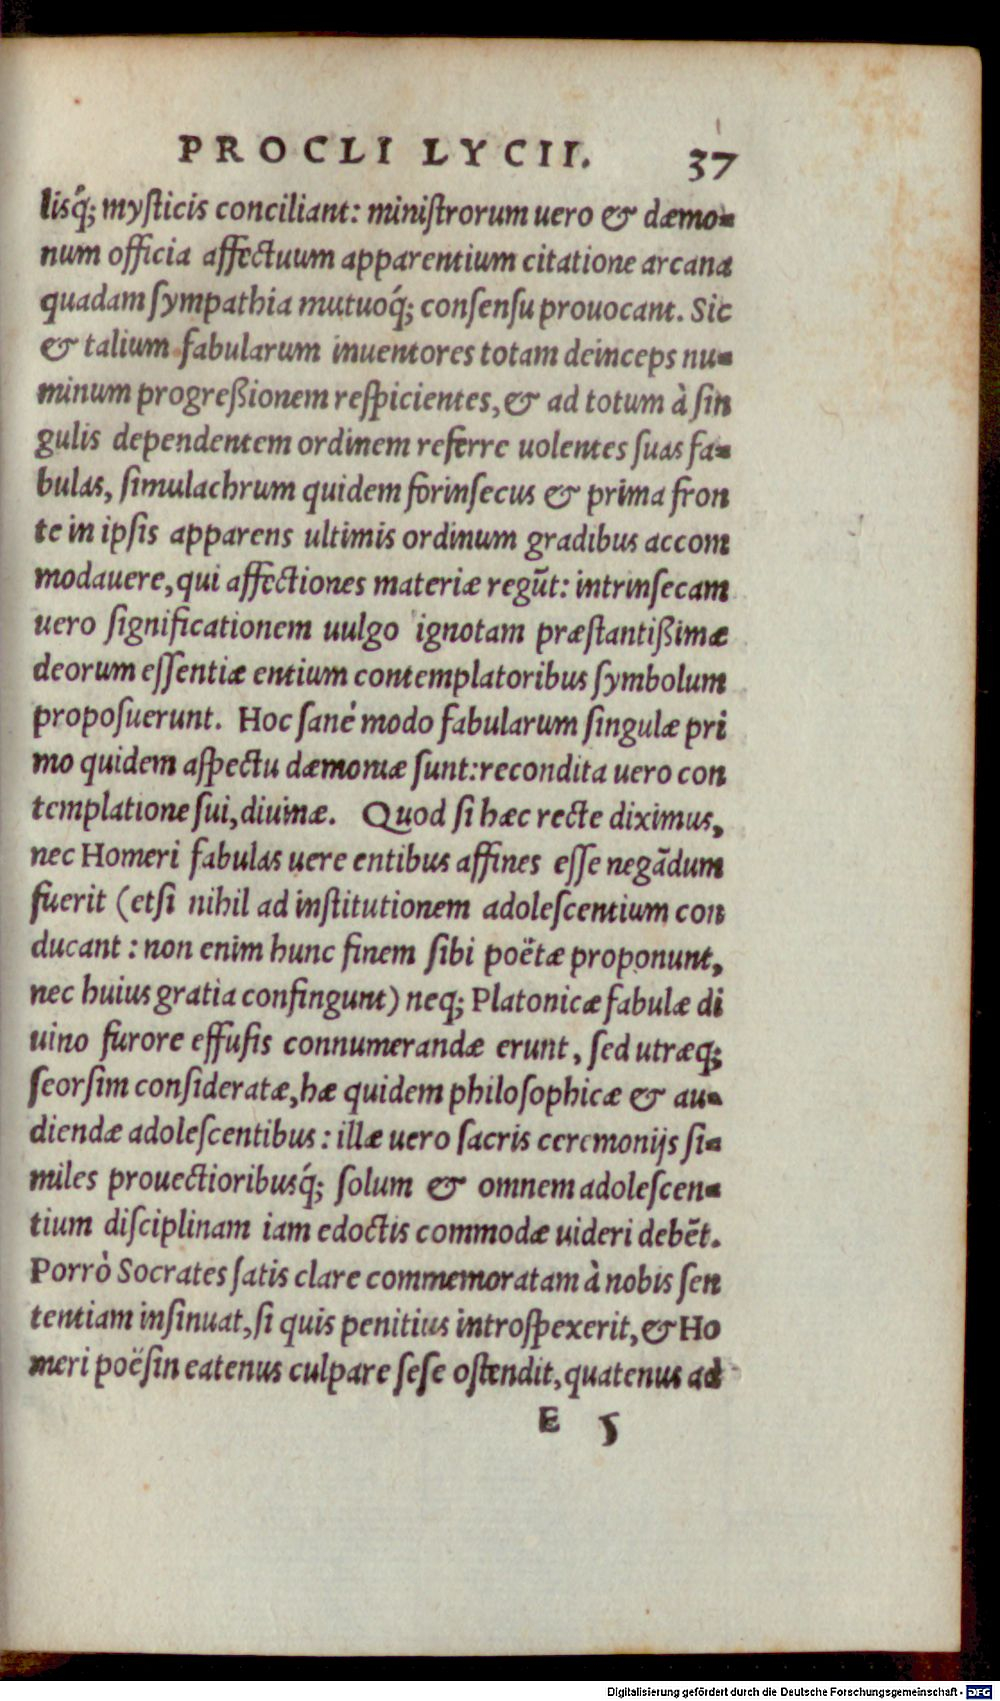 PROCLI LYCII. 37
lisq́; mysticis conciliant: ministrorum uero & dæmo-
num officia affectuum apparentium citatione arcana
quadam sympathia mutuoq́; consensu prouocant. Sic
& talium fabularum inuentores totam deinceps nu-
minum progreßionem respicientes, & ad totum à sin
gulis dependentem ordinem referre uolentes suas fa-
bulas, simulachrum quidem forinsecus & prima fron
te in ipsis apparens ultimis ordinum gradibus accom
modauere, qui affectiones materiæ regũt: intrinsecam
uero significationem uulgo ignotam præstantißimæ
deorum essentiæ entium contemplatoribus symbolum
proposuerunt. Hoc sanè modo fabularum singulæ pri
mo quidem aspectu dæmoniæ sunt: recondita uero con
templatione sui, diuinæ. Quod si hæc recte diximus,
nec Homeri fabulas uere entibus affines esse negãdum
fuerit (etsi nihil ad institutionem adolescentium con
ducant: non enim hunc finem sibi poëtæ proponunt,
nec huius gratia confingunt) neq; Platonicæ fabulæ di
uino furore effusis connumerandæ erunt, sed utræq;
seorsim consideratæ, hæ quidem philosophicæ & au-
diendæ adolescentibus: illæ uero sacris ceremonijs si-
miles prouectioribusq́; solum & omnem adolescen-
tium disciplinam iam edoctis commodæ uideri debẽt.
Porrò Socrates satis clare commemoratam à nobis sen
tentiam insinuat, si quis penitius introspexerit, & Ho
meri poësin eatenus culpare sese ostendit, quatenus ad
E 5
Digitalisierung gefördert durch die Deutsche Forschungsgemeinschaft - DFG